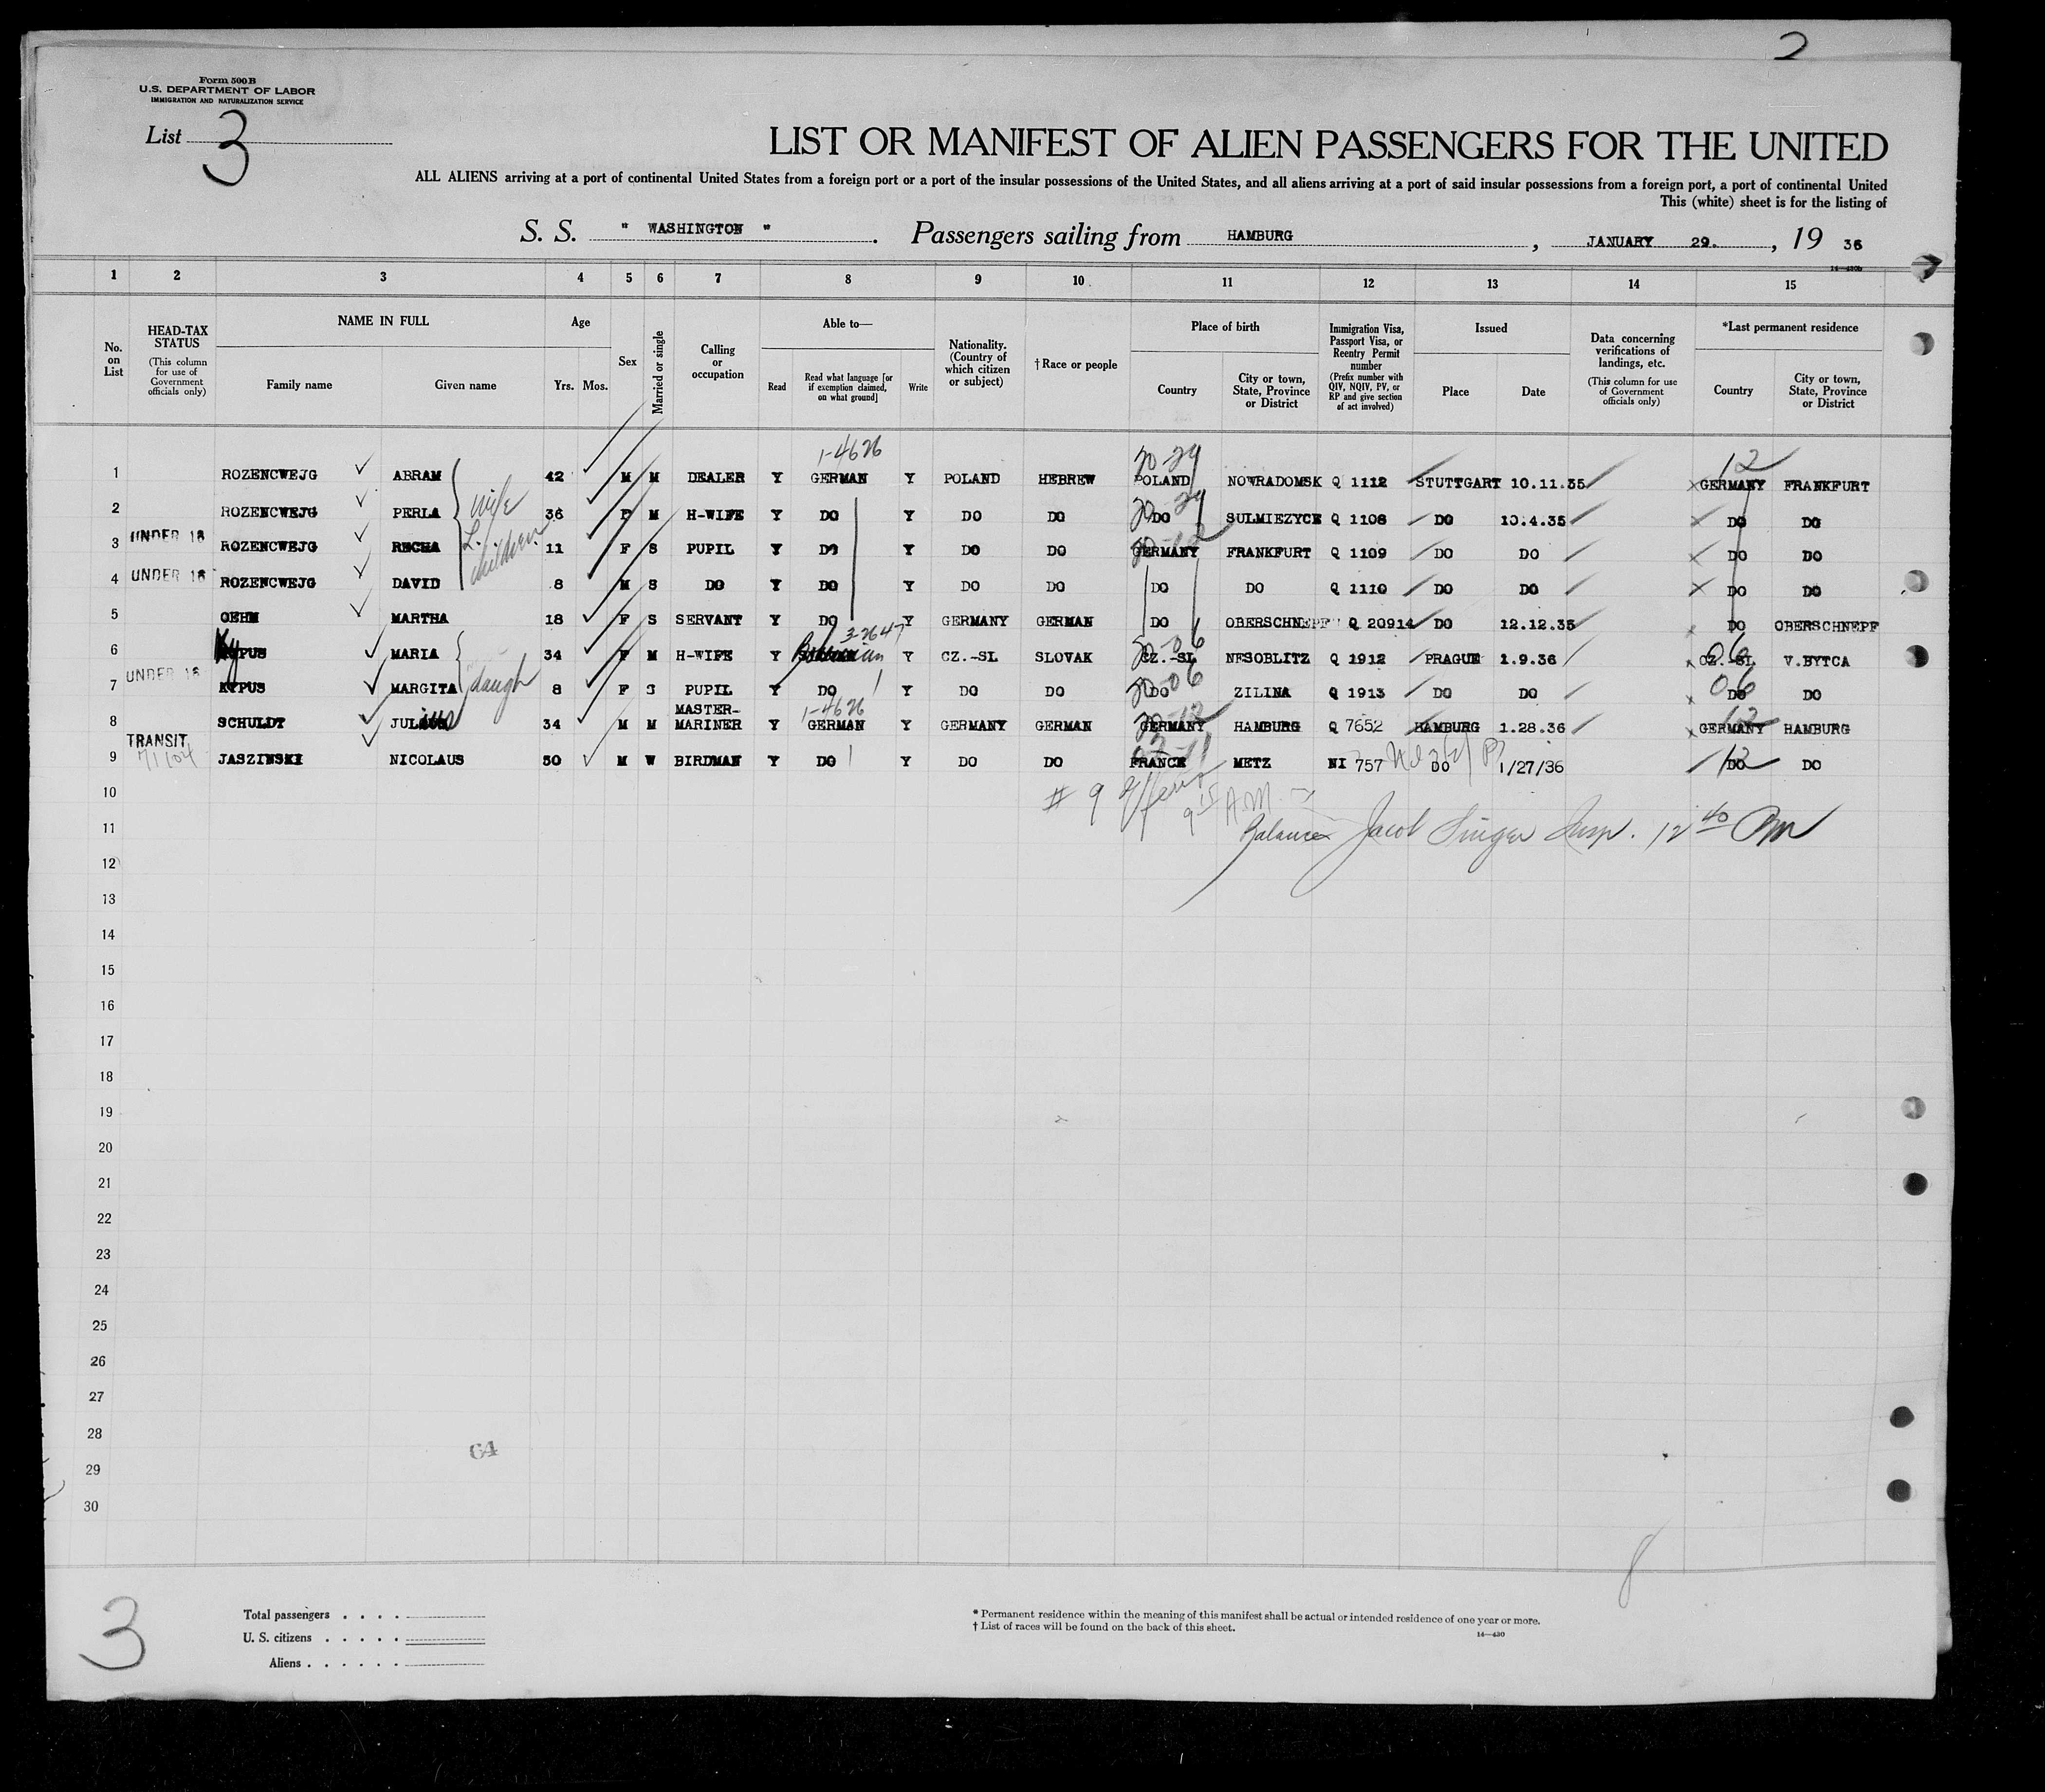 2
Form 500 B
U.S. DEPARTMENT OF LABOR
IMMIGRATION AND NATURALIZATION SERVICE
List 3
LIST OR MANIFEST OF ALIEN PASSENGERS FOR THE UNITED
ALL ALIENS arriving at a port of continental United States from a foreign port or a port of the insular possessions of the United States, and all aliens arriving at a port of said insular possessions from a foreign port, a port of continental United
This (white) sheet is for the listing of
S. S. " WASHINGTON " . Passengers sailing from HAMBURG , JANUARY 29. , 19 36
1 2 3 4 5 6 7 8 9 10 11 12 13 14 15
No. on List
HEAD-TAX STATUS (This column for use of Government officials only)
NAME IN FULL
Family name Given name
Age
Yrs. Mos.
Sex
Married or single
Calling or occupation
Able to—
Read Read what language [or if exemption claimed, on what ground] Write
Nationality. (Country of which citizen or subject)
† Race or people
Place of birth
Country City or town, State, Province or District
Immigration Visa, Passport Visa, or Reentry Permit number (Prefix number with QIV, NQIV, PV, or RP and give section of act involved)
Issued
Place Date
Data concerning verifications of landings, etc. (This column for use of Government officials only)
*Last permanent residence
Country City or town, State, Province or District
1-4626 20-29 12
1 ROZENCWEJG ABRAM 42 M M DEALER Y GERMAN Y POLAND HEBREW POLAND NOWRADOMSK Q 1112 STUTTGART 10.11.35 GERMANY FRANKFURT
2 ROZENCWEJG PERLA wife 36 F M H-WIFE Y DO Y DO DO DO SULMIEZYCE Q 1108 DO 10.4.35 DO DO
3 UNDER 16 ROZENCWEJG RECHA children 11 F S PUPIL Y DO Y DO DO GERMANY FRANKFURT Q 1109 DO DO DO DO
4 UNDER 16 ROZENCWEJG DAVID 8 M S DO Y DO Y DO DO DO DO Q 1110 DO DO DO DO
5 OEHM MARTHA 18 F S SERVANT Y DO Y GERMANY GERMAN DO OBERSCHNEPF Q 20914 DO 12.12.35 DO OBERSCHNEPF
6 KYPUS MARIA 34 F M H-WIFE Y Bohemian Y CZ.-SL SLOVAK CZ.-SL NESOBLITZ Q 1912 PRAGUE 1.9.36 CZ.-SL V.BYTCA
7 UNDER 16 KYPUS MARGITA daugh 8 F S PUPIL Y DO Y DO DO DO ZILINA Q 1913 DO DO DO DO
1-4626
8 SCHULDT JULIUS 34 M M MASTER-MARINER Y GERMAN Y GERMANY GERMAN GERMANY HAMBURG Q 7652 HAMBURG 1.28.36 GERMANY HAMBURG
9 TRANSIT JASZINSKI NICOLAUS 50 M W BIRDMAN Y DO Y DO DO FRANCE METZ NI 757 DO 1/27/36 DO DO
10 # 9
11 Jacob Singer Insp. 12 40 PM
12
13
14
15
16
17
18
19
20
21
22
23
24
25
26
27
28
29
30
64
3
Total passengers
U. S. citizens
Aliens
* Permanent residence within the meaning of this manifest shall be actual or intended residence of one year or more.
† List of races will be found on the back of this sheet.
14—430